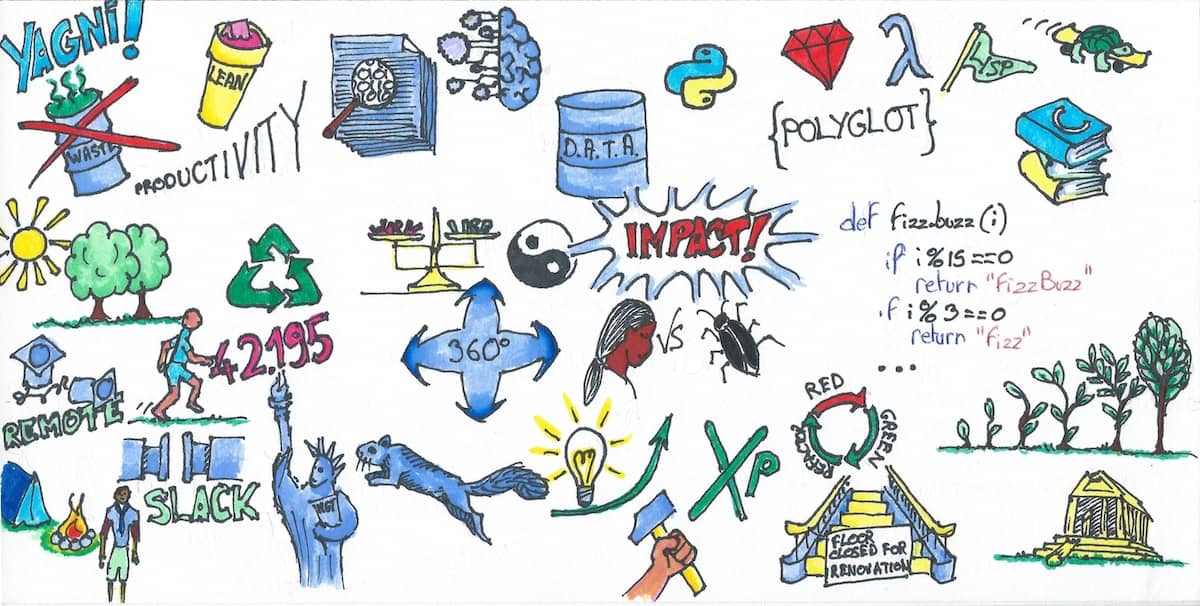 YAGNI!
LEAN
WASTE
PRODUCTIVITY
D.A.T.A.
{POLYGLOT}
IMPACT!
def fizzbuzz(i)
if i%15==0
return "FizzBuzz"
if i%3==0
return "fizz"
...
42.195
360°
VS
REMOTE
SLACK
XP
RED
GREEN
REFACTOR
FLOOR
CLOSED FOR
RENOVATION